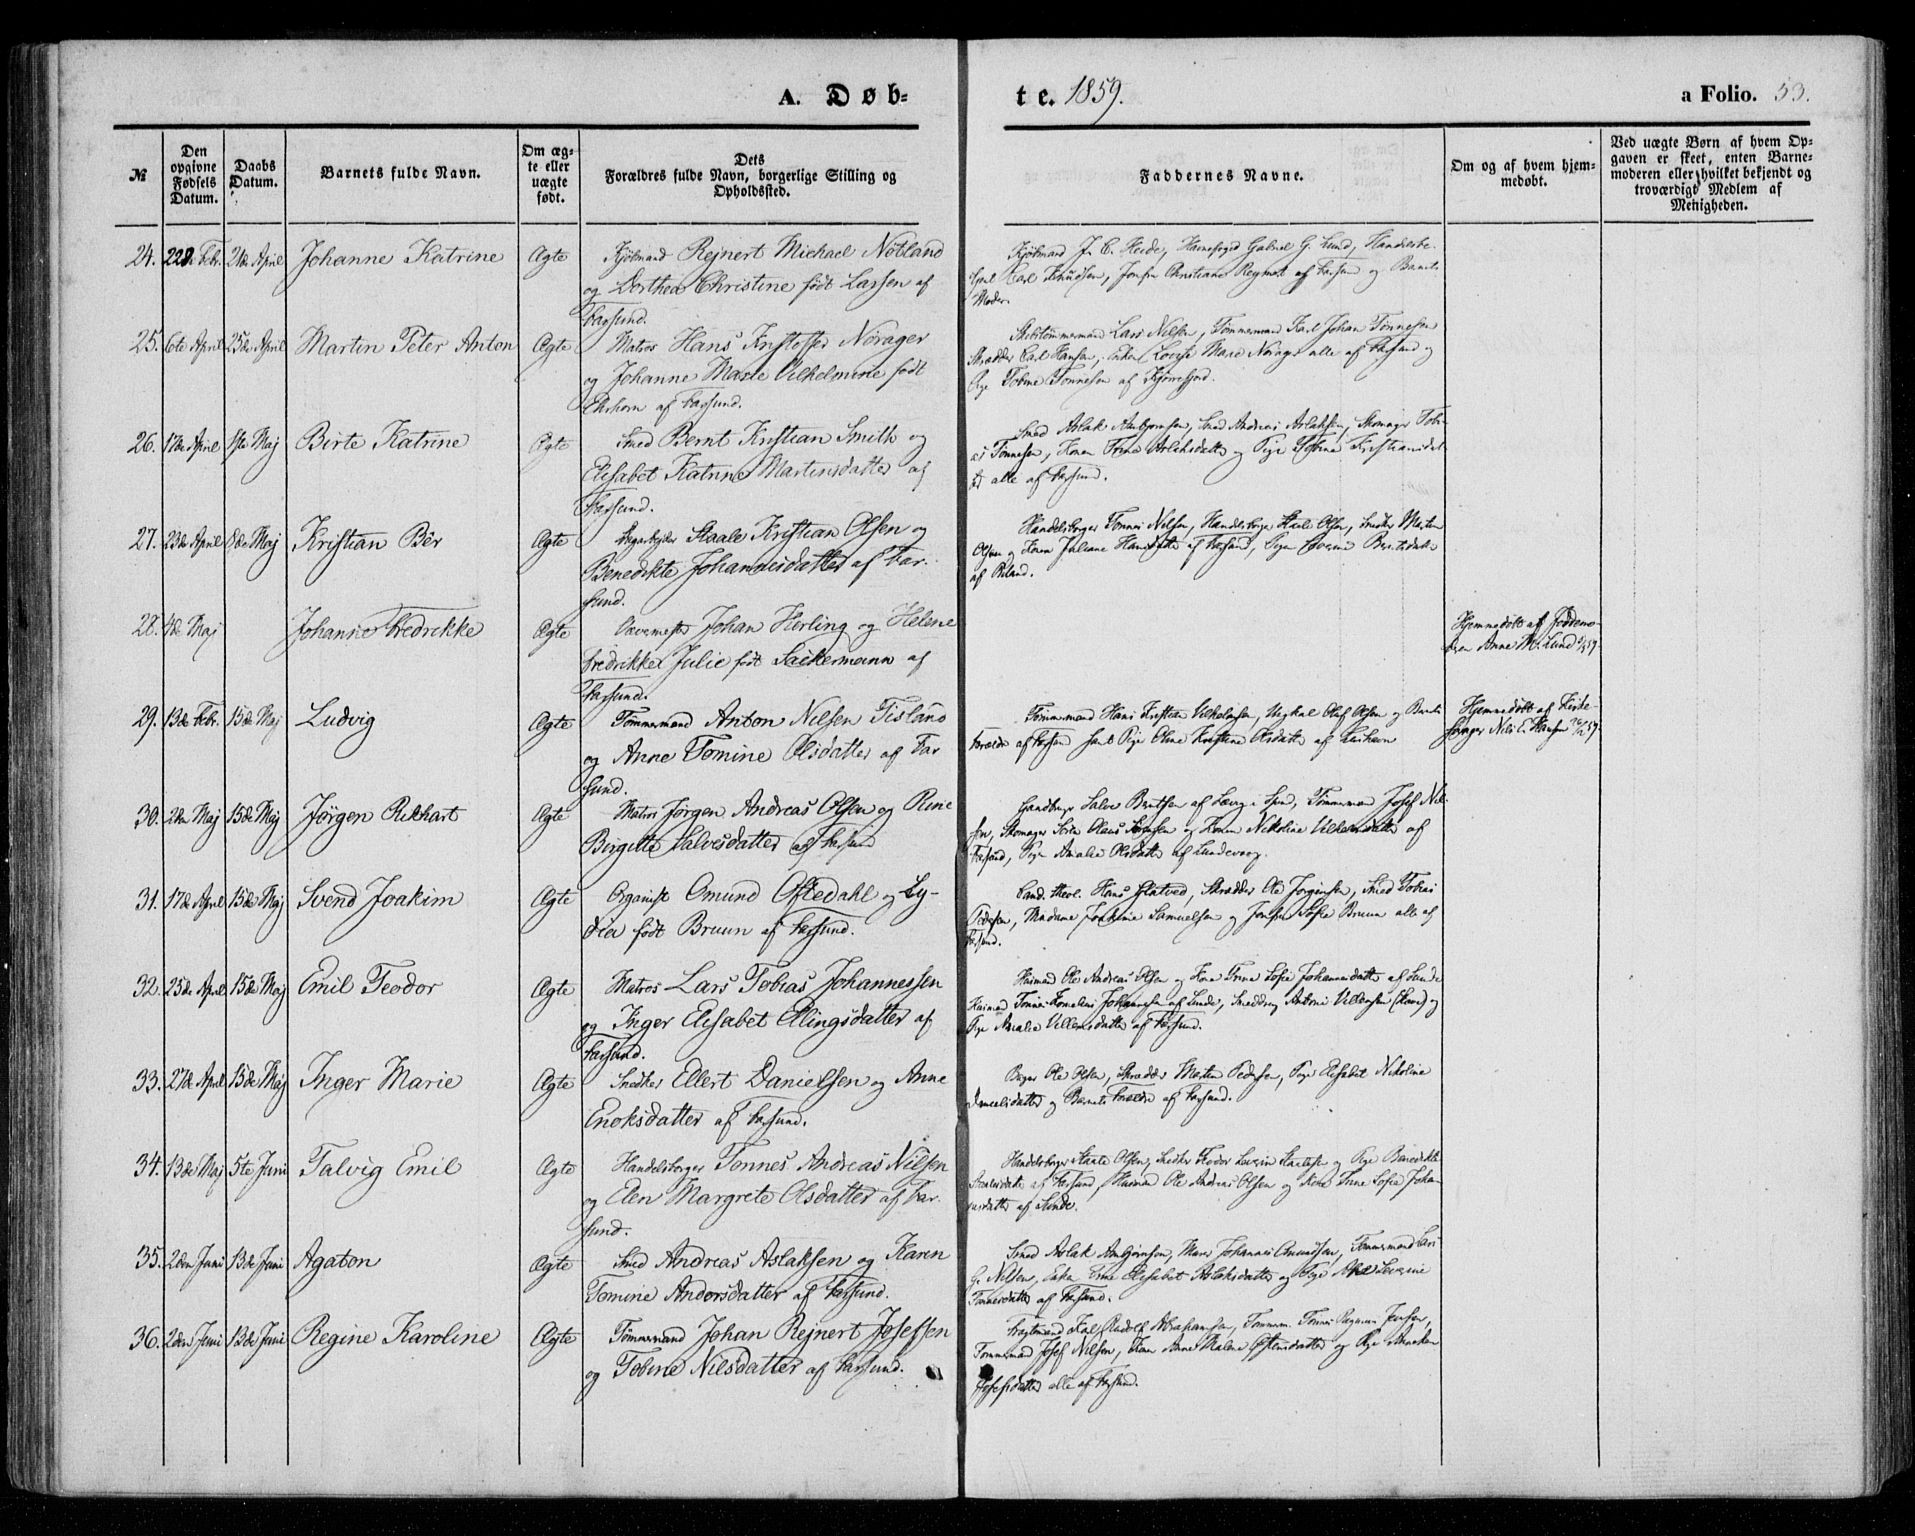 A. Døb-
te. 1859.
a Folio. 53.
№
Den opgivne Fødsels Datum.
Daabs Datum.
Barnets fulde Navn.
Om ægte eller uægte født.
Dets Forældres fulde Navn, borgerlige Stilling og Opholdssted.
Faddernes Navne.
Om og af hvem hjemmedøbt.
Ved uægte Børn af hvem Opgaven er skeet, enten Barnemoderen eller hvilket bekjendt og troværdigt Medlem af Menigheden.
24. Febr. 21de April Johanne Katrine Ægte Kjøbmand Rejnert Michael Nötland
og Dorthea Christine født Larsen af
Farsund.
Kjøbmand J. C. Heide, Havnefoged Gabriel G. Lund,
Carl Knudsen, Jomfru Christiane Reymert af Farsund og Barnets
Moder.
25. 6te April 25de April Martin Peter Anton Ægte Matros Hans Kristoffer Nörager
og Johanne Marie Vilhelmine født
af Farsund.
Skibstømmermand Lars Nilsen, Tømmermand Karl Johan Tönnesen
Skrædder Carl Hansen, Enken Lovise Marie Nörager alle af Farsund og
Pige Tobine Tönnesen af
26. 17de April 1ste Maj Birte Katrine Ægte Smed Bernt Kristian Smith og
Elisabet Katrine Martinsdatter af
Farsund.
Smed Aslak Ambjørnsen, Smed Andreas Aslaksen, Skomager Tobi-
as Tönnesen, Konen Trine Aslaksdatter og Pige Kristiansdat-
ter alle af Farsund.
27. 23de April 8de Maj Kristian Bér Ægte Staale Kristian Olsen og
Benedikte Johannisdatter af Far-
sund.
Handelsborger Tönnes Nilsen, Handelsborger Staale Olsen, Snedker Morten
Olsen og Konen Juliane Hansdatter af Farsund, Pige Severine Berntsdatter
af
28. 4de Maj Johanne Fredrikke Ægte Johan Herling og Helene
Fredrikke Julie født Sackermann af
Farsund.
Hjemmedøbt af Jordemo-
deren Anne M. Lund
29. 13de Febr. 15de Maj Ludvig Ægte Tømmermand Anton Nilsen Tisland
og Anne Tomine Olsdatter af Far
sund.
Tømmermand Hans Kristian Vilhelmsen, Ungkal Oluf Olsen og Barnets
Forældre af Farsund samt Pige Oline Kristine Olsdatter af
Hjemmedøbt af Kirke-
sanger Nils E. Hansen
30. 2den Maj 15de Maj Jörgen Rikhart Ægte Matros Jörgen Andreas Olsen og Rine
Birgitte Salvesdatter af Farsund
Salve Berntsen af Tømmermand Josef Nil-
sen, Skomager Sören Olaus og Konen Nikoline Villumsdatter af
Farsund, Pige Amalie Olsdatter af Lundevaag.
31. 17de April 15de Maj Svend Joakim Ægte Organist Omund Oftedahl og Ly-
dia født Bruun af Farsund.
Cand. theol. Hans Skrædder Ole Jörgensen, Smed Tobias
Pedersen, Madame Joakime Samuelsen og Jomfru Sofie Bruun alle af
Farsund.
32. 25de April 15de Maj Emil Teodor Ægte Matros Lars Tobias Johannessen
og Inger Elisabet Ellingsdatter af
Farsund.
Huimand Ole Andreas Olsen og Kone Trine Sofie Johannesdatter af Lunde
Huimand Tönnes Kornelius Johannesen af Lunde, Antoni Villumsen og
Pige Amalie Villumsdatter af Farsund.
33. 27de April 15de Maj Inger Marie Ægte Snedker Ellert Danielsen og Anne
Enoksdatter af Farsund.
Bager Ole Olsen, Skrædder Morten Pedersen, Pige Elisabet Nikoline
Danielsdatter og Barnets Forældre af Farsund.
34. 13de Maj 5te Juni Talvig Emil Ægte Handelsborger Tönnes Andreas Nilsen
og Elen Margrete Olsdatter af Far
sund.
Handelsborger Staale Olsen, Snedker Teodor Severin Staalesen og Pige Benedikte
Staalesdatter af Farsund, Huimand Ole Andreas Olsen og Kone Trine Sofie Johan-
nesdatter af Lunde.
35. 2den Juni 13de Juni Agaton Ægte Smed Andreas Aslaksen og Karen
Tomine Andorsdatter af Farsund.
Smed Aslak Ambjørnsen, Johannes Omundsen, Tømmermand Lars
G. Nilsen, Enken Trine Elisabet Aslaksdatter og Pige Severine
Tönnesdatter af Farsund.
36. 2den Juni 13de Juni Regine Karoline Ægte Tømmermand Johan Rejnert Josefsen
og Tobine Nilsdatter af Farsund.
Karl Rudolf Abrahamsen, Tømmerm. Tönnes Jensen,
Tømmermand Josef Nilsen, Kone Anne Malene og Pige
Josefsdatter alle af Farsund.